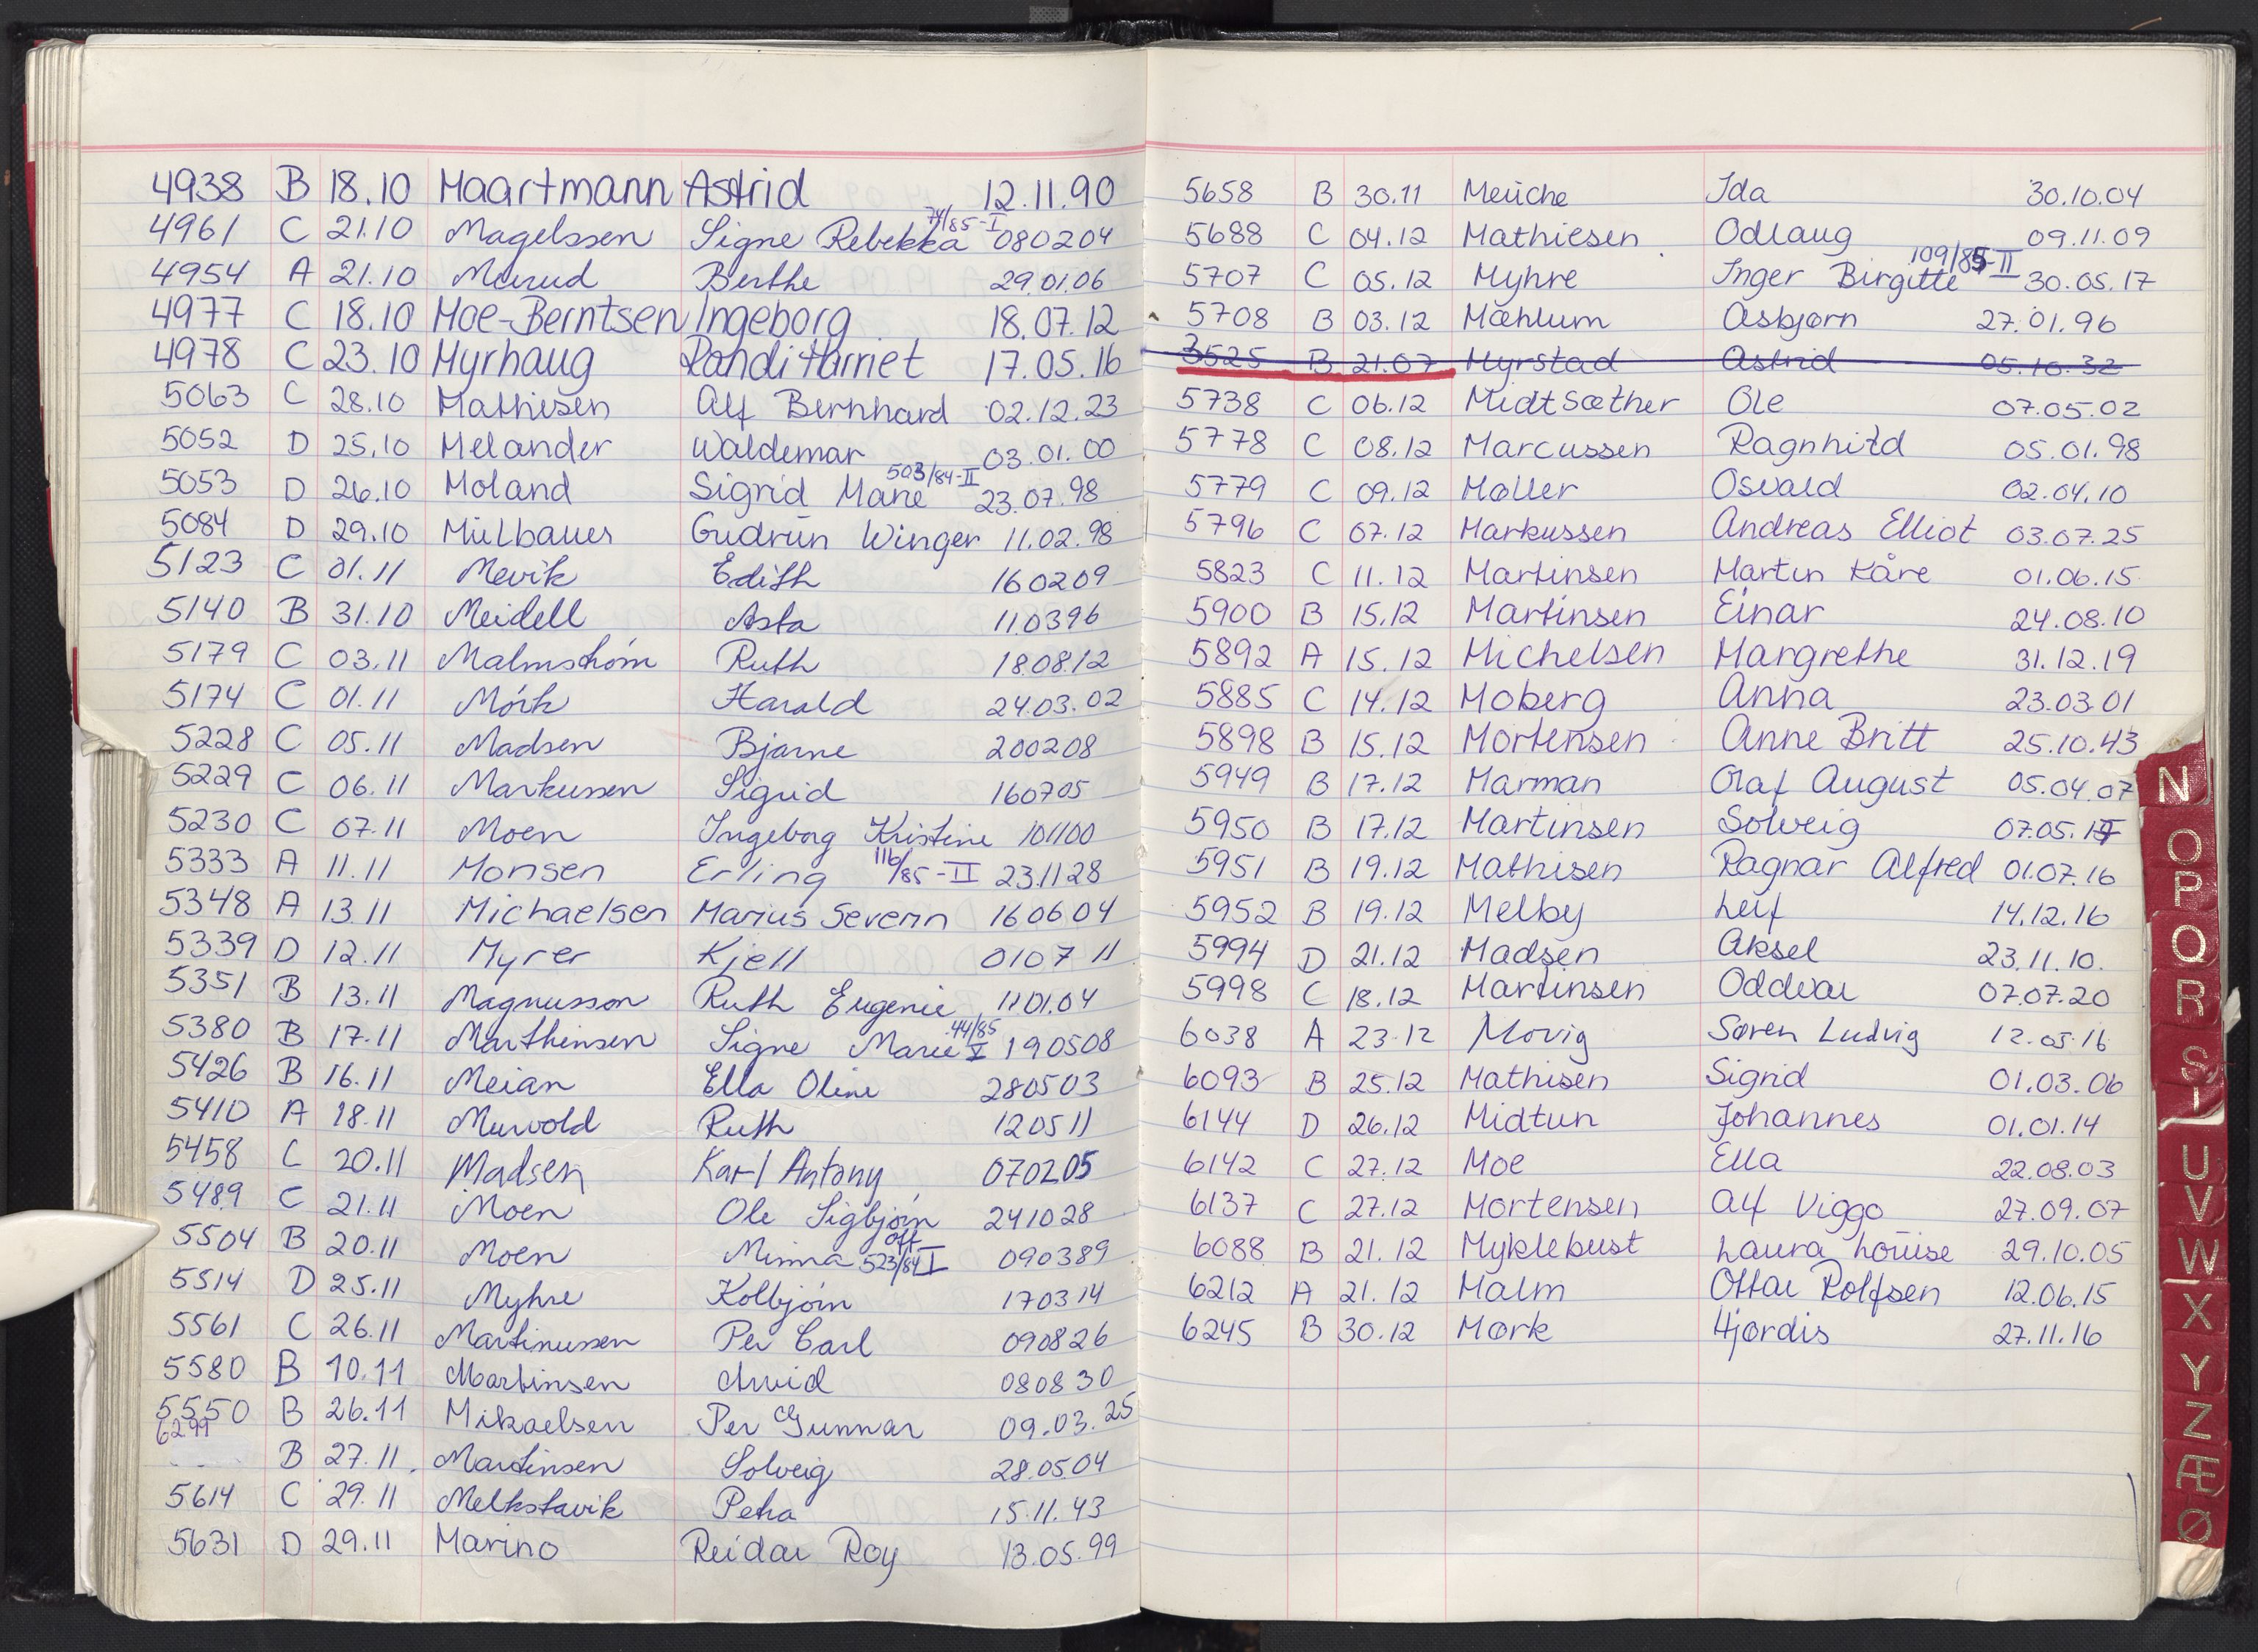 4938 B 18.10 Maartmann Astrid 12.11.90
74/85-I
4961 C 21.10 Magelssen Signe Rebekka 080204
4954 A 21.10 Marud Berthe 29.01.06
4977 C 18.10 Moe-Berntsen Ingeborg 18.07.12
4978 C 23.10 Myrhaug Randi Harriet 17.05.16
5063 C 28.10 Mathisen Alf Bernhard 02.12.23
5052 D 25.10 Melander Waldemar 03.01.00
503/84-II
5053 D 26.10 Moland Sigrid Marie 23.07.98
5084 D 29.10 Mülbauer Gudrun Winger 11.02.98
5123 C 01.11 Mevik Edith 160209
5140 B 31.10 Meidell Asta 110396
5179 C 03.11 Malmstrøm Ruth 180812
5174 C 01.11 Mørk Harald 24.03.02
5228 C 05.11 Madsen Bjarne 200208
5229 C 06.11 Markussen Sigrid 160705
5230 C 07.11 Moen Ingeborg Kristine 101100
116/85-II
5333 A 11.11 Monsen Erling 231128
5348 A 13.11 Michaelsen Marius Severin 160604
5339 D 12.11 Myrer Kjell 010711
5351 B 13.11 Magnusson Ruth Eugenie 110104
44/85
5380 B 17.11 Marthinsen Signe Marie V 190508
5426 B 16.11 Meian Ella Oline 280503
5410 A 18.11 Murvold Ruth 120511
5458 C 20.11 Madsen Karl Antony 070205
5489 C 21.11 Moen Ole Sigbjørn 241028
off
5504 B 20.11 Moen Minna 523/84 I 090389
5514 D 25.11 Myhre Kolbjørn 170314
5561 C 26.11 Martinussen Per Carl 090826
5580 B 10.11 Martinsen Arvid 080830
5550 B 26.11 Mikaelsen Per Gunnar 09.03.25
6299
B 27.11 Martinsen Solveig 28.05.04
5614 C 29.11 Melkstavik Petra 15.11.43
5631 D 29.11 Marino Reidar Roy 13.05.99
5658 B 30.11 Meüche Ida 30.10.04
5688 C 04.12 Mathiesen Odlaug 09.11.09
109/85-II
5707 C 05.12 Myhre Inger Birgitte 30.05.17
5708 B 03.12 Mæhlum Asbjørn 27.01.96
3525 B 21.07 Myrstad Astrid 05.10.32
5738 C 06.12 Midtsæther Ole 07.05.02
5778 C 08.12 Marcussen Ragnhild 05.01.98
5779 C 09.12 Møller Osvald 02.04.10
5796 C 07.12 Markussen Andreas Elliot 03.07.25
5823 C 11.12 Martinsen Martin Kåre 01.06.15
5900 B 15.12 Martinsen Einar 24.08.10
5892 A 15.12 Michelsen Margrethe 31.12.19
5885 C 14.12 Moberg Anna 23.03.01
5898 B 15.12 Mortensen Anne Britt 25.10.43
5949 B 17.12 Marman Olaf August 05.04.07
5950 B 17.12 Martinsen Solveig 07.05.17
5951 B 19.12 Mathisen Ragnar Alfred 01.07.16
5952 B 19.12 Melby Leif 14.12.16
5994 D 21.12 Madsen Aksel 23.11.10.
5998 C 18.12 Martinsen Oddvar 07.07.20
6038 A 23.12 Movig Søren Ludvig 12.05.16
6093 B 25.12 Mathisen Sigrid 01.03.06
6144 D 26.12 Midtun Johannes 01.01.14
6142 C 27.12 Moe Ella 22.08.03
6137 C 27.12 Mortensen Alf Viggo 27.09.07
6088 B 21.12 Myklebust Laura Louise 29.10.05
6212 A 21.12 Malm Ottar Rolfsen 12.06.15
6245 B 30.12 Mørk Hjørdis 27.11.16
N
O
P
Q
R
S
T
U
V
W
X
Y
Z
Æ
Ø